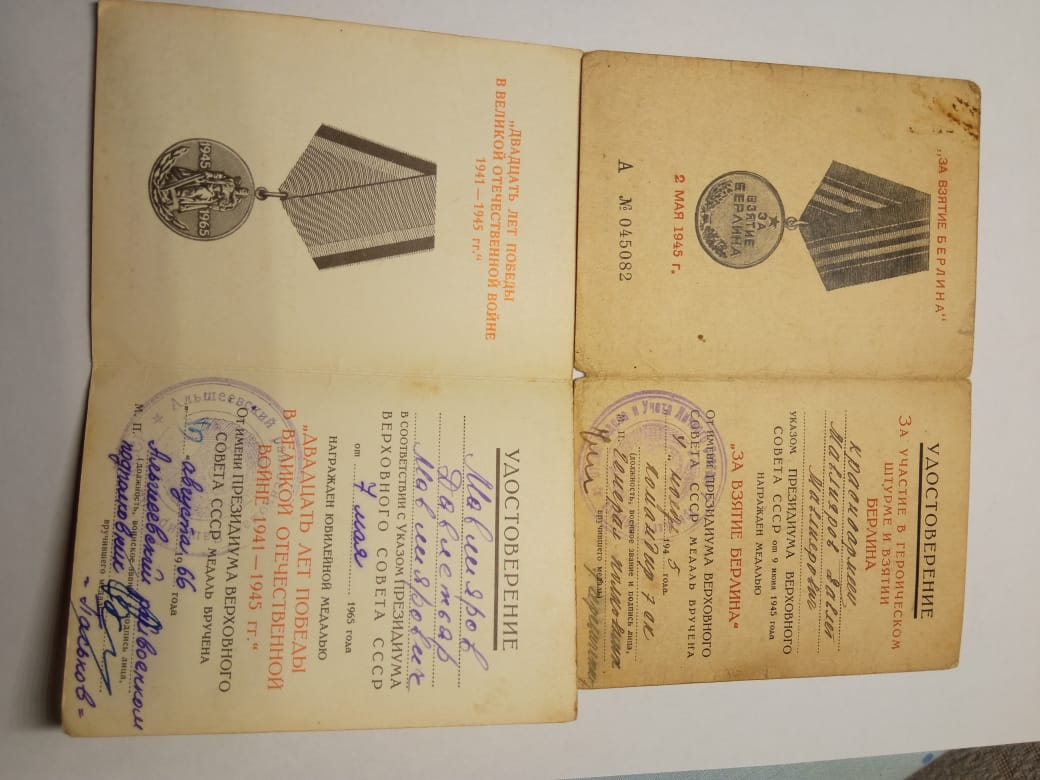 „ЗА ВЗЯТИЕ БЕРЛИНА“
ЗА
ВЗЯТИЕ
БЕРЛИНА
2 МАЯ 1945 г.
А № 045082
УДОСТОВЕРЕНИЕ
ЗА УЧАСТИЕ В ГЕРОИЧЕСКОМ
ШТУРМЕ И ВЗЯТИИ
БЕРЛИНА
красноармеец
Мавлияров Давлет
УКАЗОМ ПРЕЗИДИУМА ВЕРХОВНОГО
СОВЕТА СССР от 9 июня 1945 года
НАГРАЖДЕН МЕДАЛЬЮ
„ЗА ВЗЯТИЕ БЕРЛИНА“
ОТ ИМЕНИ ПРЕЗИДИУМА ВЕРХОВНОГО
СОВЕТА СССР МЕДАЛЬ ВРУЧЕНА
1945 года.
командир 7 ак
(должность, военное звание и подпись лица,
М. П. генерал-
вручившего медаль)
и Учета
„ДВАДЦАТЬ ЛЕТ ПОБЕДЫ
В ВЕЛИКОЙ ОТЕЧЕСТВЕННОЙ ВОЙНЕ
1941—1945 гг.“
1945 1965
УДОСТОВЕРЕНИЕ
Мавлияров
Давлетьяр
Мавлиярович
В СООТВЕТСТВИИ С УКАЗОМ ПРЕЗИДИУМА
ВЕРХОВНОГО СОВЕТА СССР
от 7 мая 1965 года
НАГРАЖДЕН ЮБИЛЕЙНОЙ МЕДАЛЬЮ
„ДВАДЦАТЬ ЛЕТ ПОБЕДЫ
В ВЕЛИКОЙ ОТЕЧЕСТВЕННОЙ
ВОЙНЕ 1941—1945 гг.“
От ИМЕНИ ПРЕЗИДИУМА ВЕРХОВНОГО
СОВЕТА СССР МЕДАЛЬ ВРУЧЕНА
августа 1966 года
Альшеевский райвоенком
М. П. (должность, воинское звание и подпись лица,
подполковник
вручившего медаль)
Альшеевский